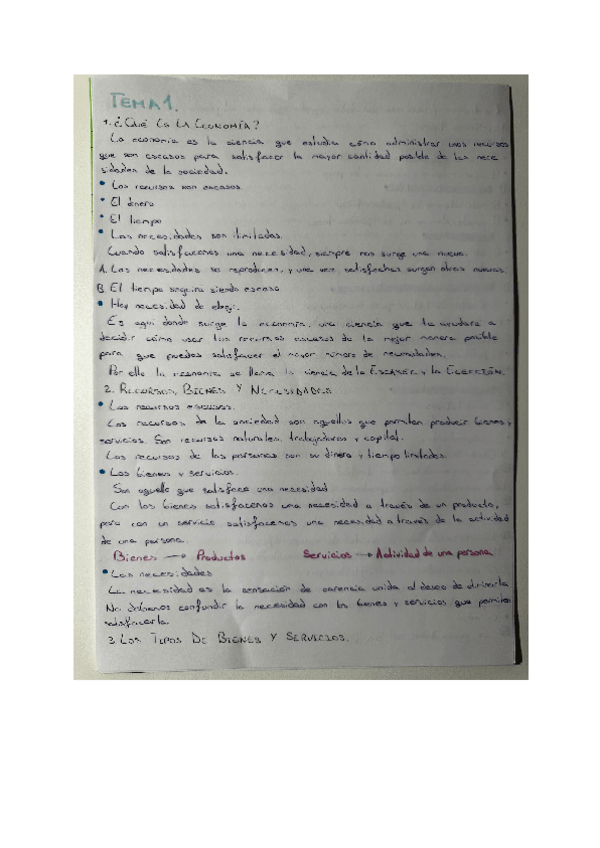 TEMA 1.
1. ¿QUÉ ES LA ECONOMÍA?
La economía es la ciencia que estudia cómo administrar unos recursos
que son escasos para satisfacer la mayor cantidad posible de las nece
sidades de la sociedad.
• Los recursos son escasos.
• El dinero
• El tiempo
• Las necesidades son ilimitadas.
Cuando satisfacemos una necesidad, siempre nos surge una nueva.
A. Las necesidades se reproducen, y una vez satisfechas surgen otras nuevas.
B. El tiempo seguirá siendo escaso
• Hay necesidad de elegir.
Es aquí donde surge la economía, una ciencia que te ayudará a
decidir cómo usar tus recursos escasos de la mejor manera posible
para que puedas satisfacer el mayor número de necesidades.
Por ello la economía se llama la ciencia de la ESCASEZ y la ELECCIÓN.
2. RECURSOS, BIENES Y NECESIDADES
• Los recursos escasos.
Los recursos de la sociedad son aquellos que permiten producir bienes y
servicios. Son recursos naturales, trabajadores y capital.
Los recursos de las personas son su dinero y tiempo limitados.
• Los bienes y servicios.
Son aquello que satisface una necesidad
Con los bienes satisfacemos una necesidad a través de un producto,
pero con un servicio satisfacemos una necesidad a través de la actividad
de una persona.
Bienes → Productos Servicios → Actividad de una persona
• Las necesidades
La necesidad es la sensación de carencia unida al deseo de eliminarla
No debemos confundir la necesidad con los bienes y servicios que permiten
satisfacerla.
3. LOS TIPOS DE BIENES Y SERVICIOS.